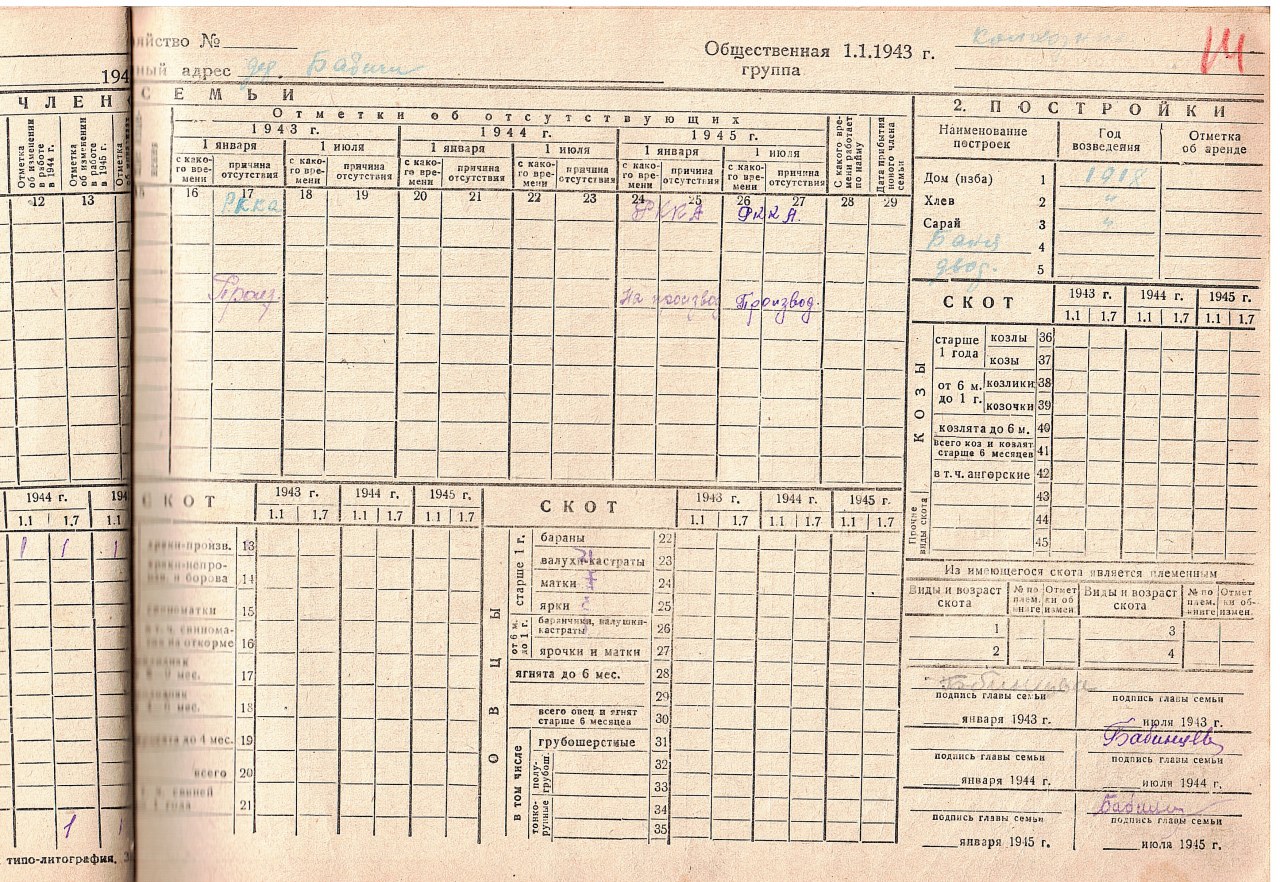 яйство №
Общественная 1.1.1943 г.
группа
ный адрес дер. Бабичи
194
ЧЛЕН
СЕМЬИ
Отметки об отсутствующих
1943 г. 1944 г. 1945 г.
1 января 1 июля 1 января 1 июля 1 января 1 июля
с како-го вре-мени причина отсутствия с како-го вре-мени причина отсутствия с како-го вре-мени причина отсутствия с како-го вре-мени причина отсутствия с како-го вре-мени причина отсутствия с како-го вре-мени причина отсутствия
Отметка об изменении в работе в 1944 г.
Отметка об изменении в работе в 1945 г.
Отметка
С какого вре-мени работает по найму
Дата прибытия нового члена семьи
12 13 15 16 17 18 19 20 21 22 23 24 25 26 27 28 29
Ркка РККА РККА.
Произ. На производ Производ.
2. ПОСТРОЙКИ
Наименование построек Год возведения Отметка об аренде
Дом (изба) 1 1918
Хлев 2 "
Сарай 3 "
Баня 4
двор. 5
СКОТ 1943 г. 1944 г. 1945 г.
1.1 1.7 1.1 1.7 1.1 1.7
КОЗЫ
старше 1 года козлы 36
козы 37
от 6 м. до 1 г. козлики 38
козочки 39
козлята до 6 м. 40
всего коз и козлят старше 6 месяцев 41
в т. ч. ангорские 42
Прочие виды скота
43
44
45
Из имеющегося скота является племенным
Виды и возраст скота № по плем. книге Отмет ки об измен. Виды и возраст скота № по плем. книге Отмет ки об-измен.
1 3
2 4
подпись главы семьи подпись главы семьи
января 1943 г. июля 1943 г.
Бабинцев
подпись главы семьи подпись главы семьи
января 1944 г. июля 1944 г.
подпись главы семьи подпись главы семьи
января 1945 г. июля 1945 г.
1944 г. 194
1.1 1.7 1.1
1 1 1
1 1
типо-литография.
СКОТ 1943 г. 1944 г. 1945 г.
1.1 1.7 1.1 1.7 1.1 1.7
произв. 13
и борова 14
свиноматки 15
в т. ч. свинома-
на откорме 16
17
мес. 18
до 4 мес. 19
всего 20
свиней
1 года 21
СКОТ 1943 г. 1944 г. 1945 г.
1.1 1.7 1.1 1.7 1.1 1.7
ОВЦЫ
старше 1 г.
бараны 22
валухи-кастраты 23
матки 24
ярки 25
от 6 м. до 1 г.
баранчики, валушки-кастраты 26
ярочки и матки 27
ягнята до 6 мес. 28
29
всего овец и ягнят старше 6 месяцев 30
в том числе
грубошерстные 31
полу-грубош. 32
33
тонко-рупные 34
35